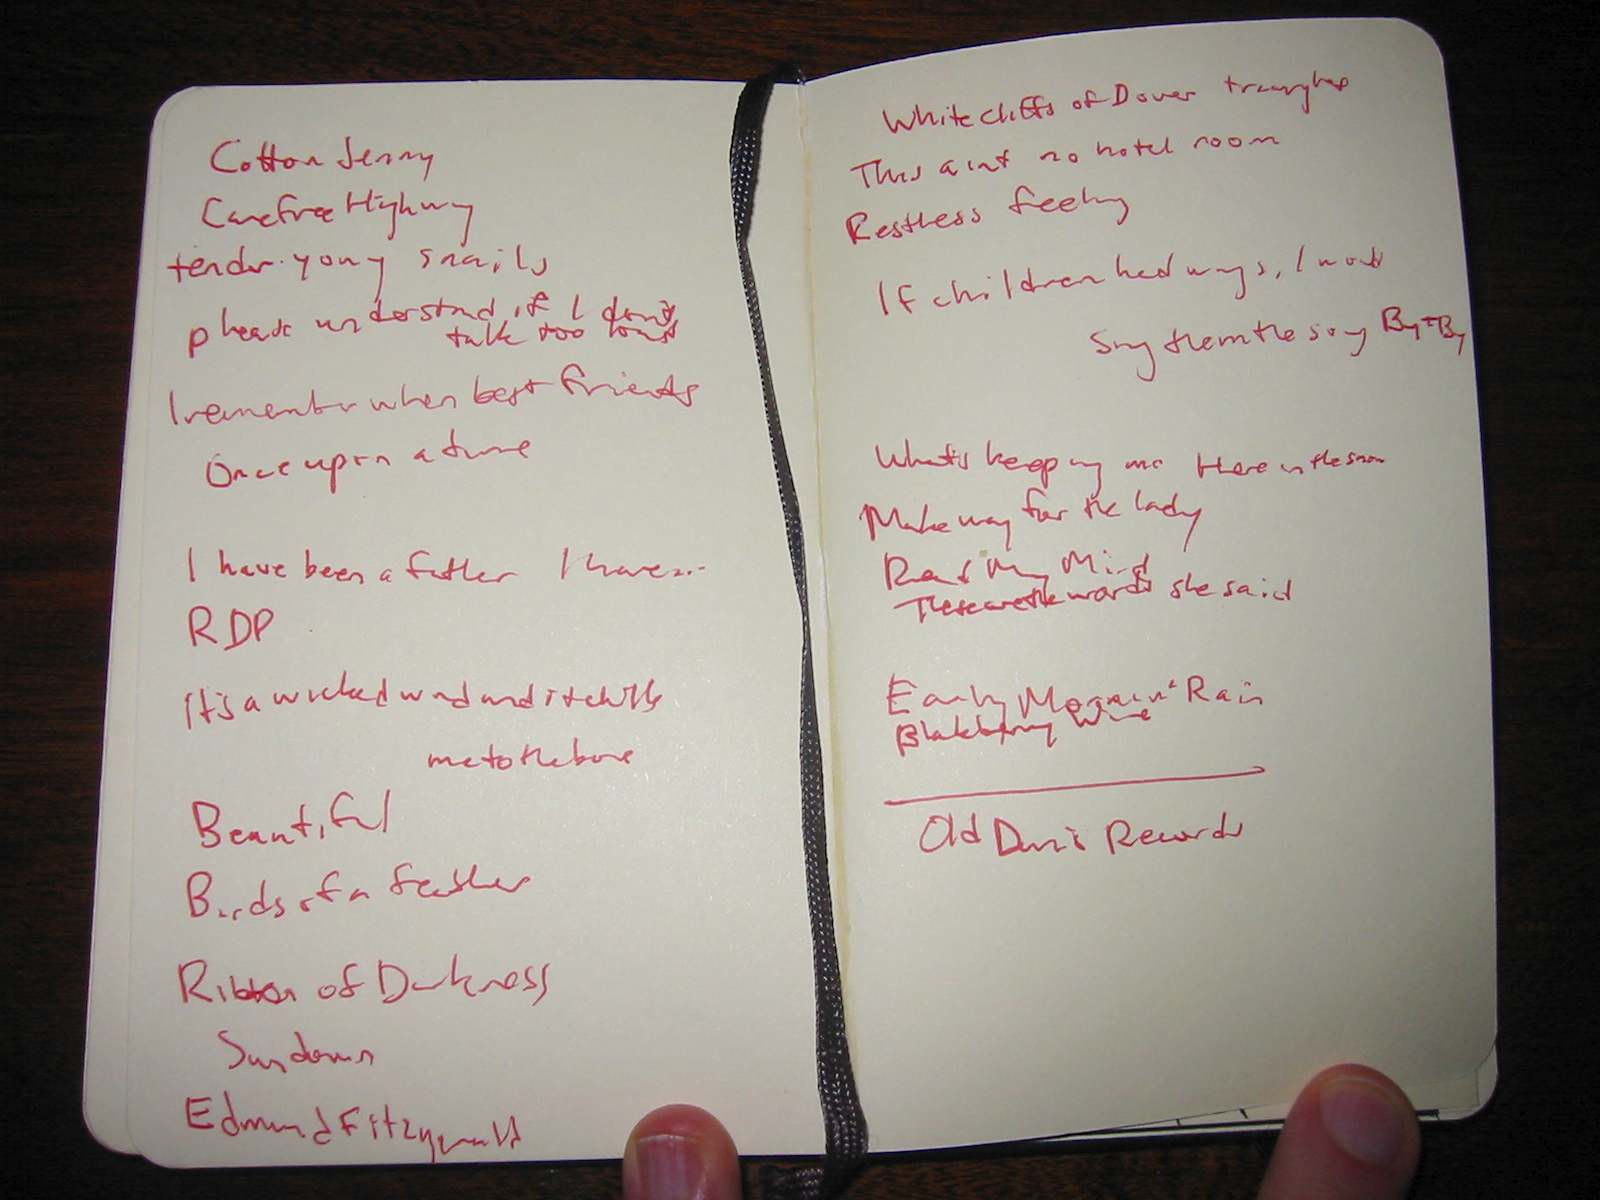 Cotton Jenny
Carefree Highway
tender young snails
please understand if I don't
talk too loud
I remember when best friends
Once upon a time
I have been a father I have...
RDP
It's a wicked wind and it chills
me to the bone
Beautiful
Birds of a feather
Ribbon of Darkness
Sundown
Edmund Fitzgerald
White cliffs of Dover
This aint no hotel room
Restless feeling
If children had wings, I would
Sing them the song By + By
What's keeping me Here in the snow
Make way for the lady
Read My Mind
These are the words she said
Early Mornin' Rain
Blackberry Wine
Old Dan's Records